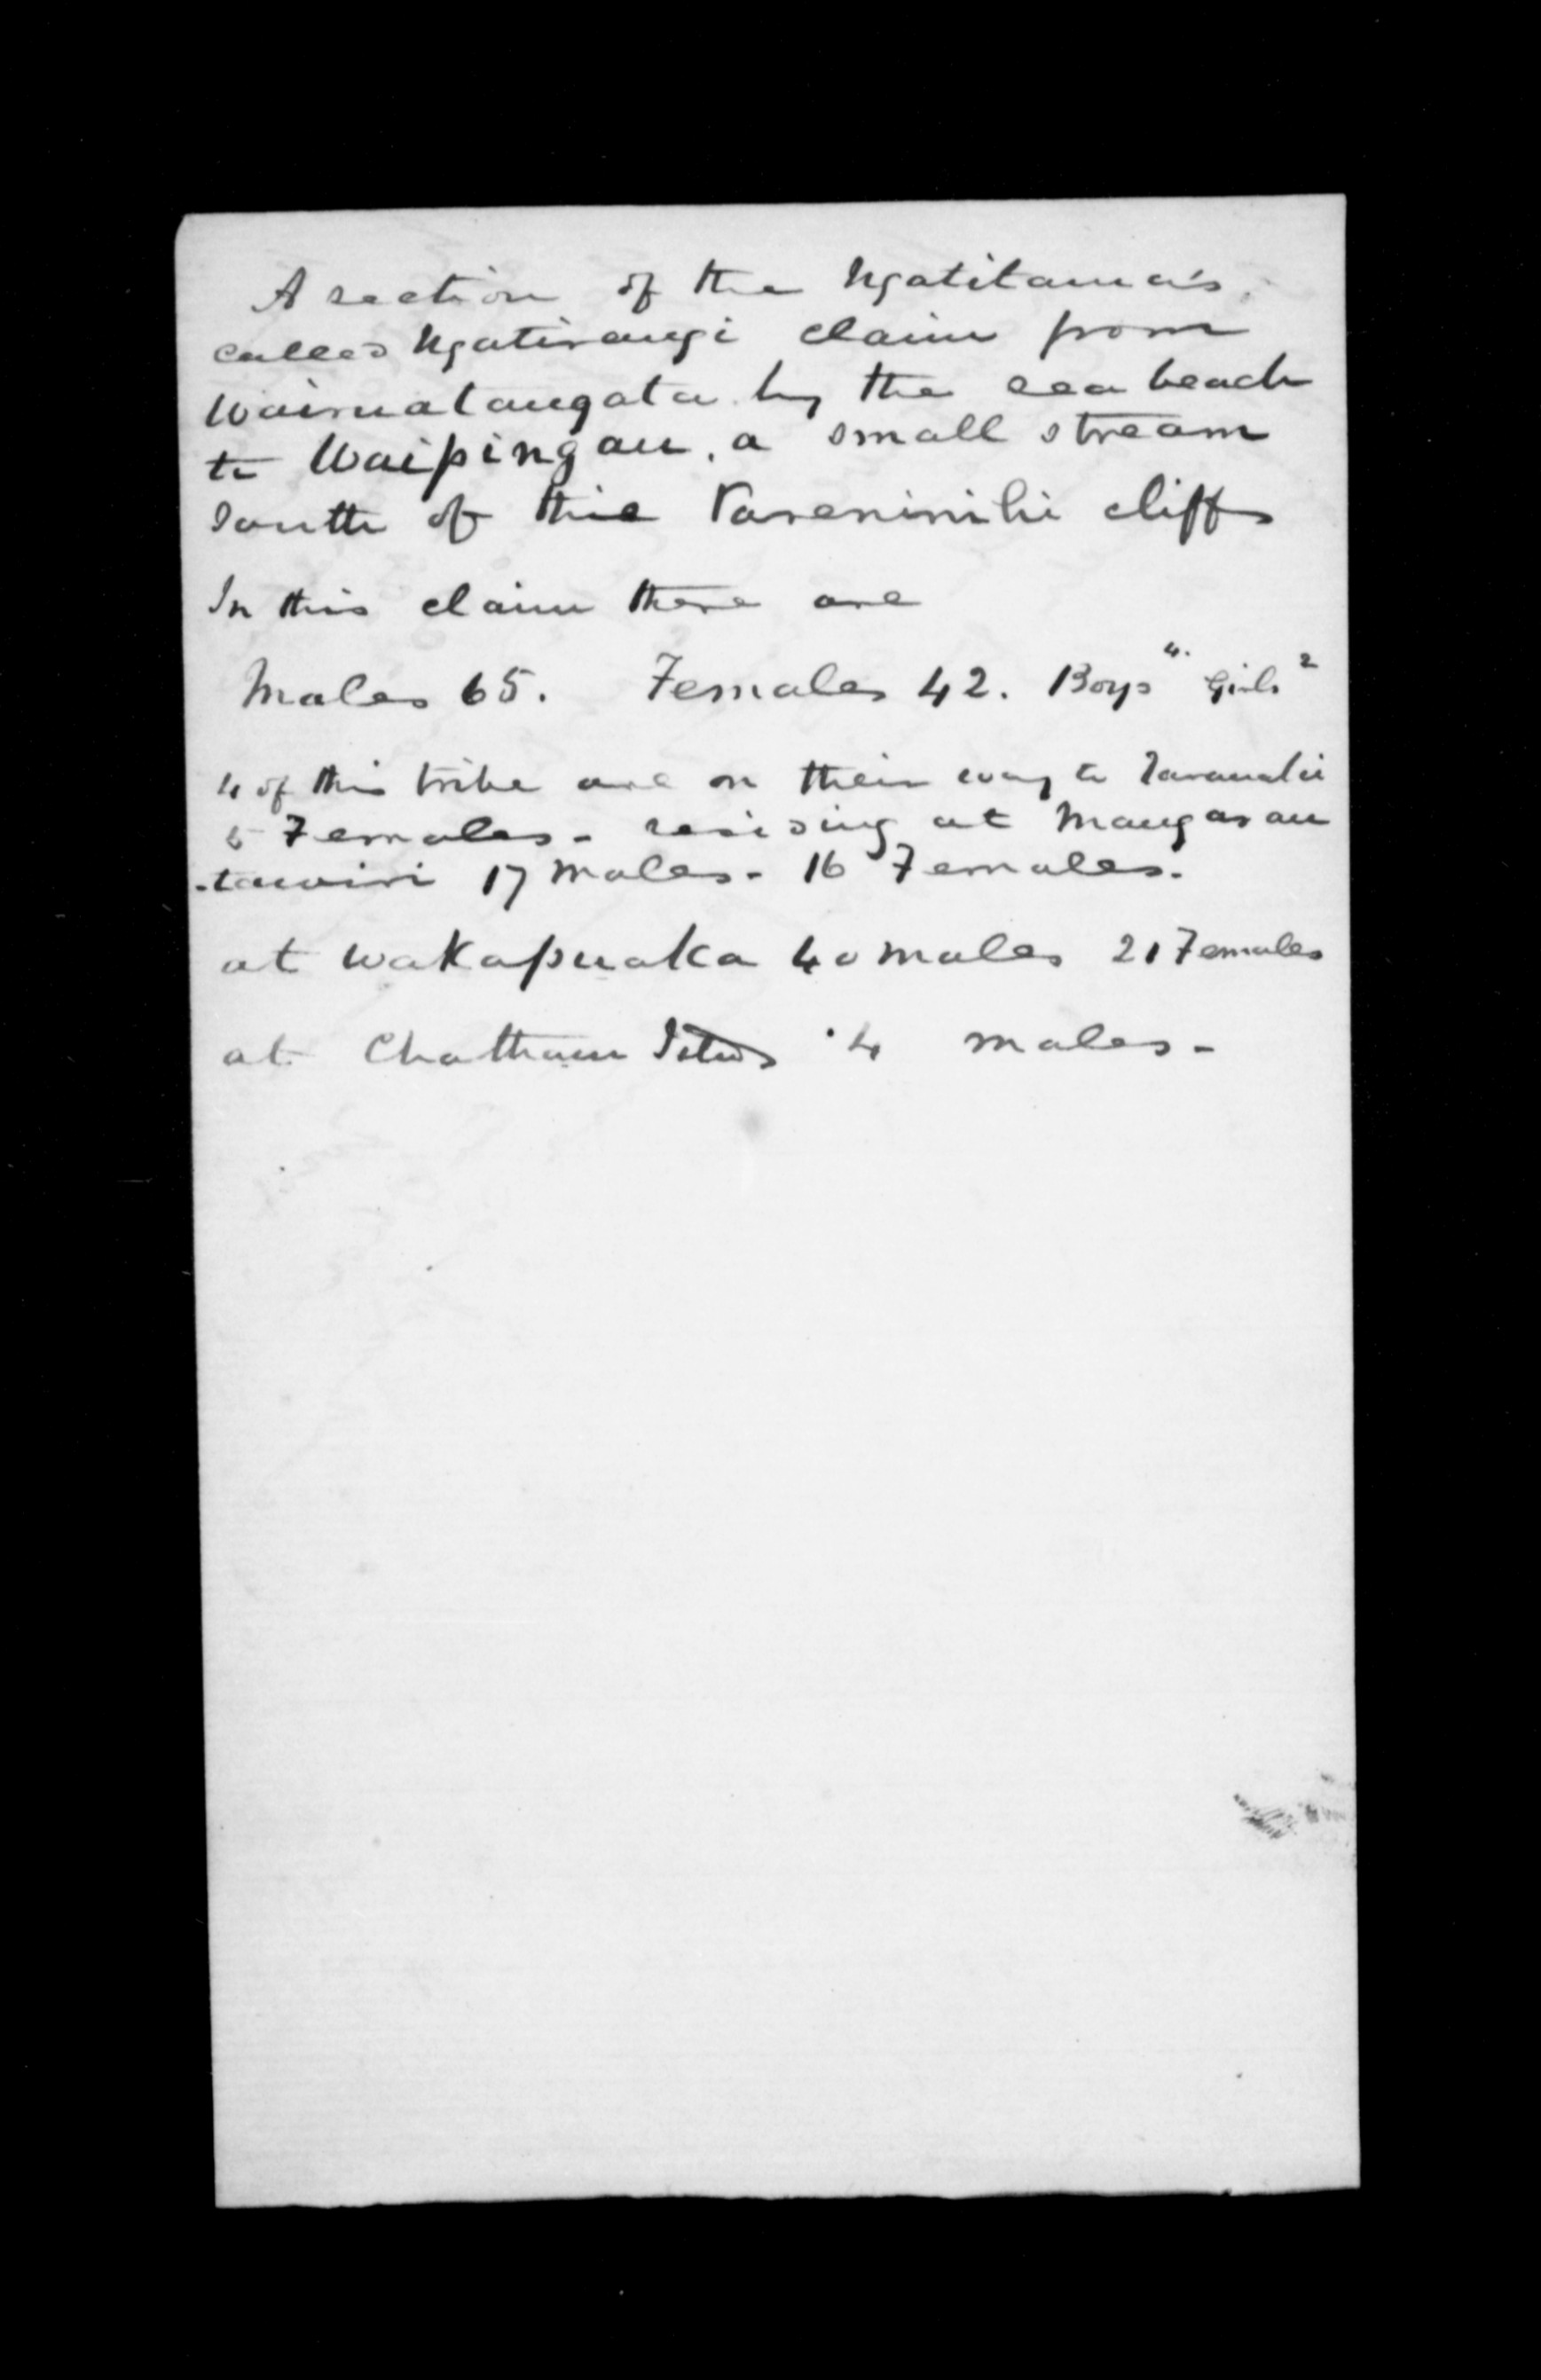 A section of the Ngatitama's,
called Ngatirangi claim from
Waimatangata by the sea beach
to Waipingau, a small stream
South of the Pareninihi cliffs
In this claim there are
Males 65. Females 42. Boys 4. Girls 2
4 of this tribe are on their way to Taranaki
5 Females - residing at Mangarau
-tawiri 17 Males - 16 Females.
at Wakapuaka 40 males 21 Females
at Chatham 4 males -